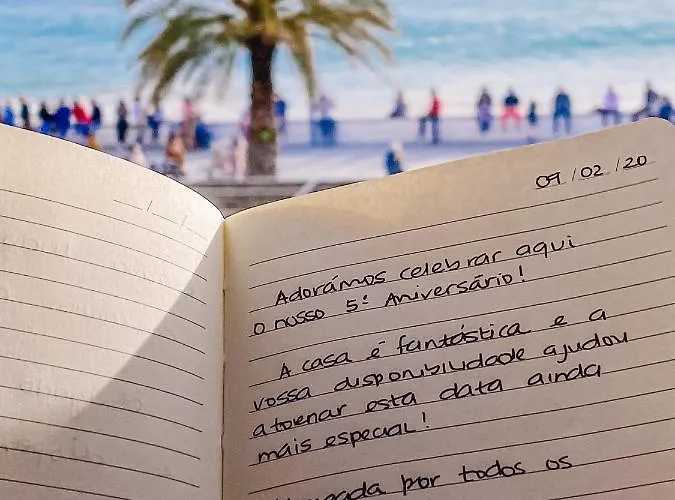 09/02/20
Adorámos celebrar aqui
o nosso 5º Aniversário!
A casa é fantástica e a
vossa disponibilidade ajudou
a tornar esta data ainda
mais especial!
por todos os